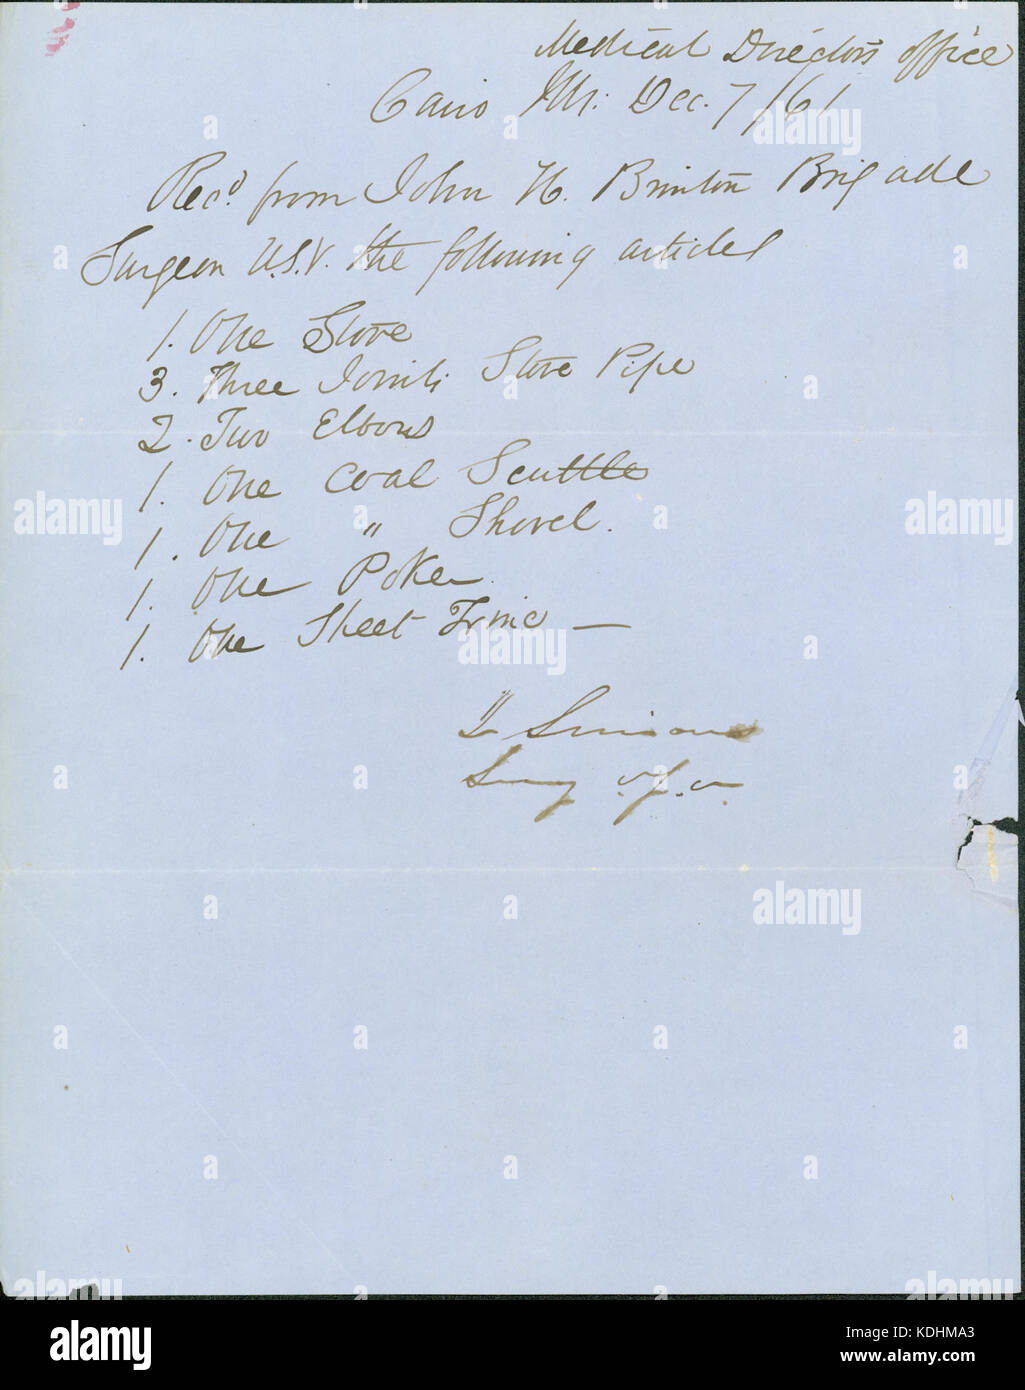 Medical Directors office
Cairo Ills. Dec. 7/61
Recd. from John H. Brinton Brigade
Surgeon U.S.V. the following articles
1. One Stove
3. Three Joints Stove Pipe
2. Two Elbows
1. One Coal Scuttle
1. One " Shovel.
1. One Poker
1. One Sheet Zinc —
Simons
Surg U.S.A.
alamy
alamy
Image ID: KDHMA3
www.alamy.com